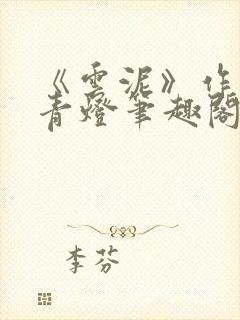 《雲泥》作
青燈筆趣閣
李芬